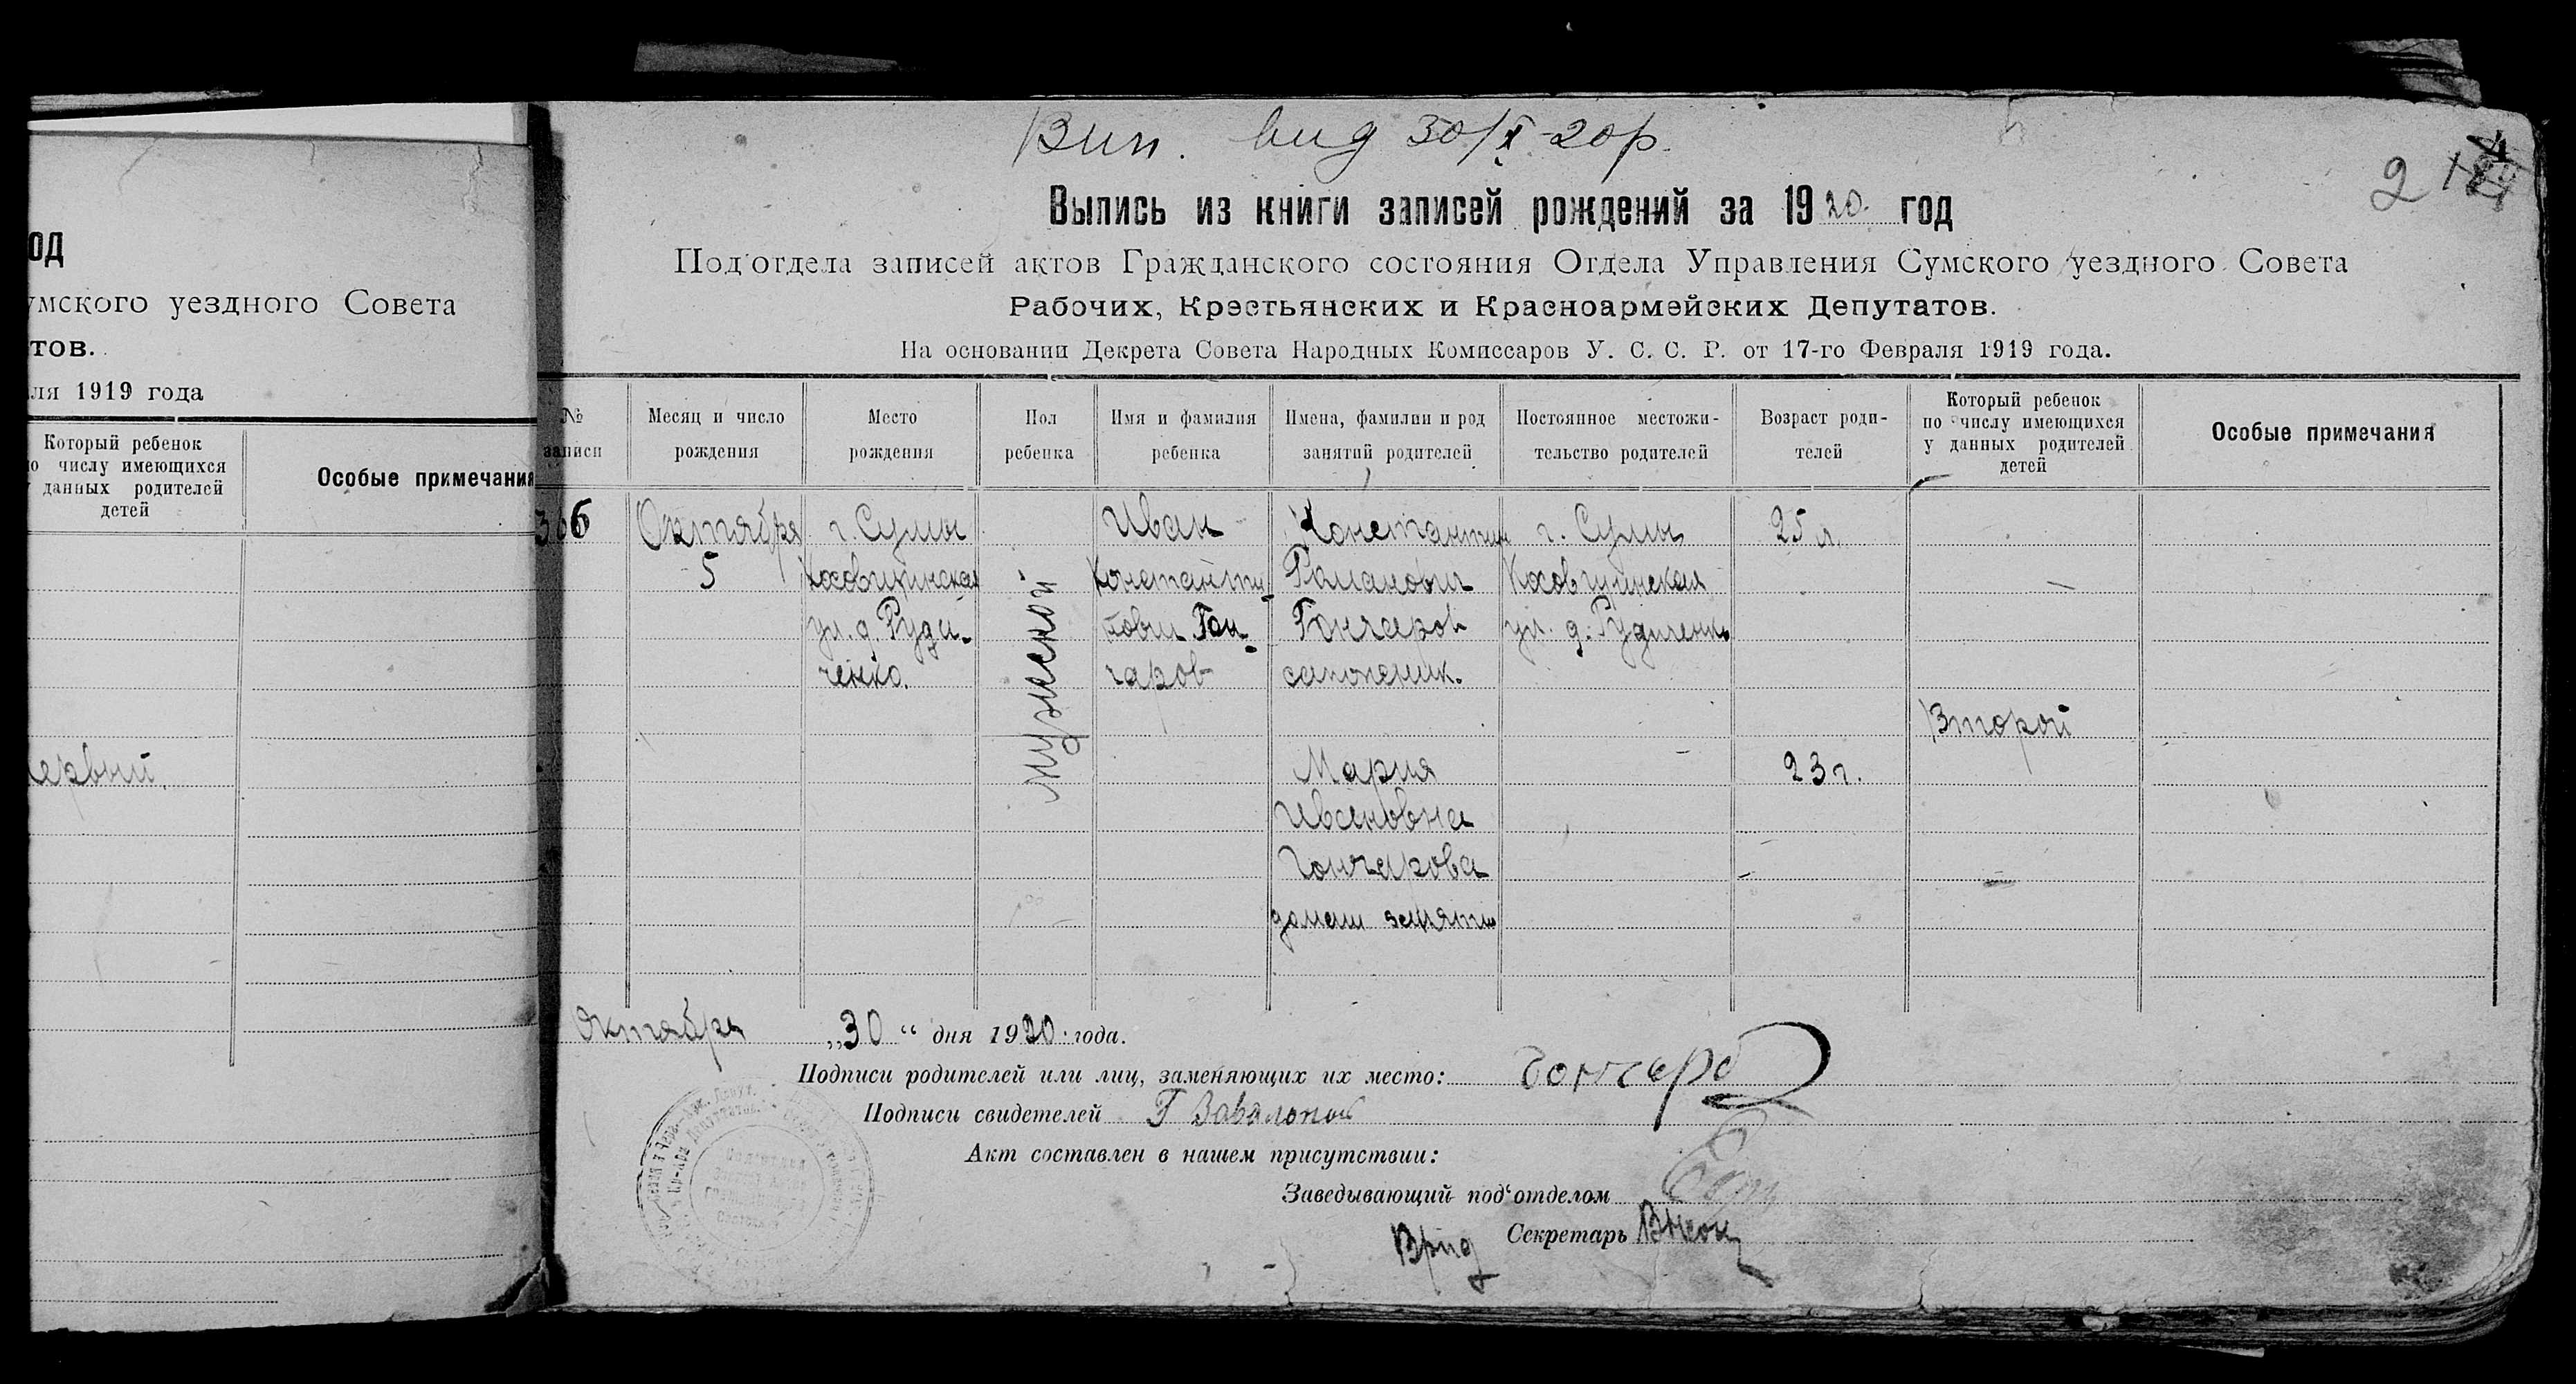 Вип. вид 30/X 20р.
2
од
умского уездного Совета
тов.
ля 1919 года
Который ребенок
по числу имеющихся
у данных родителей
детей
Особые примечания
Первый
Выпись из книги записей рождений за 1920 год
Под'отдела записей актов Гражданского состояния Отдела Управления Сумского уездного Совета
Рабочих, Крестьянских и Красноармейских Депутатов.
На основании Декрета Совета Народных Комиссаров У. С. С. Р. от 17-го Февраля 1919 года.
№
записи
Месяц и число
рождения
Место
рождения
Пол
ребенка
Имя и фамилия
ребенка
Имена, фамилии и род
занятий родителей
Постоянное местожи-
тельство родителей
Возраст роди-
телей
Который ребенок
по числу имеющихся
у данных родителей
детей
Особые примечания
366
Октября
5
г. Сумы
Косовщинская
ул. д. Руди-
ченко.
мужеской
Иван
Константи-
нович Гон-
чаров
Константин
Романович
Гончаров
сапожник.
Мария
Ивановна
Гончарова
домаш занятия
г. Сумы
Косовщинская
ул. д. Рудиченко
25 л.
23 г.
Второй
Октября „30“ дня 1920 года.
Подписи родителей или лиц, заменяющих их место: Гончаров
Подписи свидетелей Г
Акт составлен в нашем присутствии:
Заведывающий под'отделом
Врид Секретарь